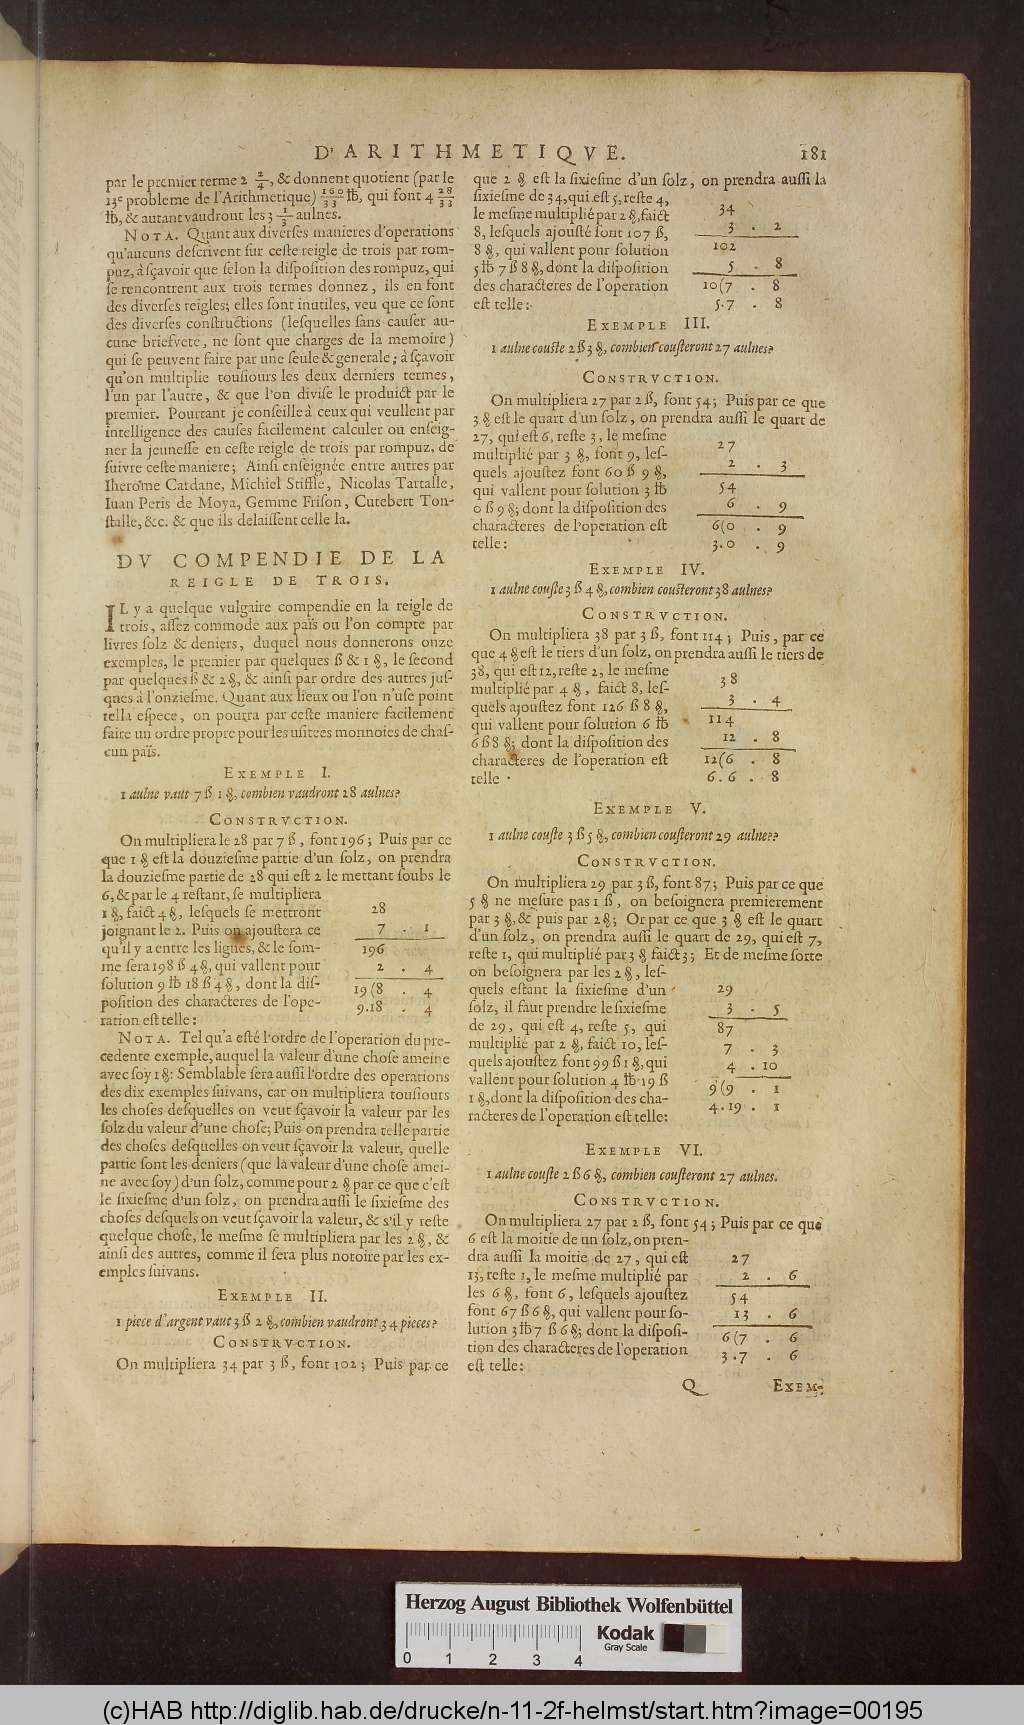 D'ARITHMETIQVE. 181
par le premier terme 2 2/4, & donnent quotient (par le
13e probleme de l'Arithmetique) 160/33 ℔, qui font 4 28/33
℔, & autant vaudront les 3 1/3 aulnes.
NOTA. Quant aux diverſes manieres d'operations
qu'aucuns deſcrivent ſur ceſte reigle de trois par rom-
puz, à ſçavoir que ſelon la diſpoſition des rompuz, qui
ſe rencontrent aux trois termes donnez, ils en font
des diverſes reigles; elles ſont inutiles, veu que ce ſont
des diverſes conſtructions (leſquelles ſans cauſer au-
cune briefveté, ne ſont que charges de la memoire)
qui ſe peuvent faire par une ſeule & generale; à ſçavoir
qu'on multiplie touſiours les deux derniers termes,
l'un par l'autre, & que l'on diviſe le produict par le
premier. Pourtant je conſeille à ceux qui veullent par
intelligence des cauſes facilement calculer ou enſeig-
ner la jeuneſſe en ceſte reigle de trois par rompuz, de
ſuivre ceſte maniere; Ainſi enſeignée entre autres par
Iherôme Cardane, Michiel Stiffle, Nicolas Tartalle,
Iuan Peris de Moya, Gemme Friſon, Cutebert Ton-
ſtalle, &c. & que ils delaiſſent celle la.
DV COMPENDIE DE LA
REIGLE DE TROIS.
IL y a quelque vulgaire compendie en la reigle de
trois, aſſez commode aux païs ou l'on compte par
livres ſolz & deniers, duquel nous donnerons onze
exemples, le premier par quelques ß & 1 ₰, le ſecond
par quelques ß & 2 ₰, & ainſi par ordre des autres juſ-
ques à l'onzieſme. Quant aux lieux ou l'on n'uſe point
telle eſpece, on pourra par ceſte maniere facilement
faire un ordre propre pour les uſitées monnoies de chaſ-
cun païs.
EXEMPLE I.
1 aulne vaut 7 ß 1 ₰, combien vaudront 28 aulnes?
CONSTRVCTION.
On multipliera le 28 par 7 ß, font 196; Puis par ce
que 1 ₰ eſt la douzieſme partie d'un ſolz, on prendra
la douzieſme partie de 28 qui eſt 2 le mettant ſoubs le
6, & par le 4 reſtant, ſe multipliera
1 ₰, faict 4 ₰, leſquels ſe mettront
joignant le 2. Puis on ajouſtera ce
qu'il y a entre les lignes, & le ſom-
me ſera 198 ß 4 ₰, qui vallent pour
ſolution 9 ℔ 18 ß 4 ₰, dont la diſ-
poſition des characteres de l'ope-
ration eſt telle:
28
7 . 1
196
2 . 4
19(8 . 4
9.18 . 4
NOTA. Tel qu'a eſté l'ordre de l'operation du pre-
cedente exemple, auquel la valeur d'une choſe ameine
avec ſoy 1 ₰: Semblable ſera auſſi l'ordre des operations
des dix exemples ſuivans, car on multipliera touſiours
les choſes deſquelles on veut ſçavoir la valeur par les
ſolz du valeur d'une choſe; Puis on prendra telle partie
des choſes deſquelles on veut ſçavoir la valeur, quelle
partie ſont les deniers (que la valeur d'une choſe amei-
ne avec ſoy) d'un ſolz, comme pour 2 ₰ par ce que c'eſt
le ſixieſme d'un ſolz, on prendra auſſi le ſixieſme des
choſes deſquels on veut ſçavoir la valeur, & s'il y reſte
quelque choſe, le meſme ſe multipliera par les 2 ₰, &
ainſi des autres, comme il ſera plus notoire par les ex-
emples ſuivans.
EXEMPLE II.
1 piece d'argent vaut 3 ß 2 ₰, combien vaudront 34 pieces?
CONSTRVCTION.
On multipliera 34 par 3 ß, font 102; Puis par ce
que 2 ₰ eſt la ſixieſme d'un ſolz, on prendra auſſi la
ſixieſme de 34, qui eſt 5, reſte 4,
le meſme multiplié par 2 ₰, faict
8, leſquels ajouſté font 107 ß,
8 ₰, qui vallent pour ſolution
5 ℔ 7 ß 8 ₰, dont la diſpoſition
des characteres de l'operation
eſt telle:
34
3 . 2
102
5 . 8
10(7 . 8
5.7 . 8
EXEMPLE III.
1 aulne couſte 2 ß 3 ₰, combien couſteront 27 aulnes?
CONSTRVCTION.
On multipliera 27 par 2 ß, font 54; Puis par ce que
3 ₰ eſt le quart d'un ſolz, on prendra auſſi le quart de
27, qui eſt 6, reſte 3, le meſme
multiplié par 3 ₰, font 9, leſ-
quels ajouſtez font 60 ß 9 ₰,
qui vallent pour ſolution 3 ℔
0 ß 9 ₰; dont la diſpoſition des
characteres de l'operation eſt
telle:
27
2 . 3
54
6 . 9
6(0 . 9
3.0 . 9
EXEMPLE IV.
1 aulne couſte 3 ß 4 ₰, combien couſteront 38 aulnes?
CONSTRVCTION.
On multipliera 38 par 3 ß, font 114; Puis, par ce
que 4 ₰ eſt le tiers d'un ſolz, on prendra auſſi le tiers de
38, qui eſt 12, reſte 2, le meſme
multiplié par 4 ₰, faict 8, leſ-
quels ajouſtez font 126 ß 8 ₰,
qui vallent pour ſolution 6 ℔
6 ß 8 ₰; dont la diſpoſition des
characteres de l'operation eſt
telle
38
3 . 4
114
12 . 8
12(6 . 8
6.6 . 8
EXEMPLE V.
1 aulne couſte 3 ß 5 ₰, combien couſteront 29 aulne??
CONSTRVCTION.
On multipliera 29 par 3 ß, font 87; Puis par ce que
5 ₰ ne meſure pas 1 ß, on beſoignera premierement
par 3 ₰, & puis par 2 ₰; Or par ce que 3 ₰ eſt le quart
d'un ſolz, on prendra auſſi le quart de 29, qui eſt 7,
reſte 1, qui multiplié par 3 ₰ faict 3; Et de meſme ſorte
on beſoignera par les 2 ₰, leſ-
quels eſtant la ſixieſme d'un
ſolz, il faut prendre le ſixieſme
de 29, qui eſt 4, reſte 5, qui
multiplie par 2 ₰, faict 10, leſ-
quels ajouſtez font 99 ß 1 ₰, qui
vallent pour ſolution 4 ℔ 19 ß
1 ₰, dont la diſpoſition des cha-
racteres de l'operation eſt telle:
29
3 . 5
87
7 . 3
4 . 10
9(9 . 1
4.19 . 1
EXEMPLE VI.
1 aulne couſte 2 ß 6 ₰, combien couſteront 27 aulnes.
CONSTRVCTION.
On multipliera 27 par 2 ß, font 54; Puis par ce que
6 eſt la moitie de un ſolz, on pren-
dra auſſi la moitie de 27, qui eſt
13, reſte 1, le meſme multiplié par
les 6 ₰, font 6, leſquels ajouſtez
font 67 ß 6 ₰, qui vallent pour ſo-
lution 3 ℔ 7 ß 6 ₰; dont la diſpoſi-
tion des characteres de l'operation
eſt telle:
27
2 . 6
54
13 . 6
6(7 . 6
3.7 . 6
Q EXEM-
Herzog August Bibliothek Wolfenbüttel
Kodak
Gray Scale
0 1 2 3 4
(c)HAB http://diglib.hab.de/drucke/n-11-2f-helmst/start.htm?image=00195